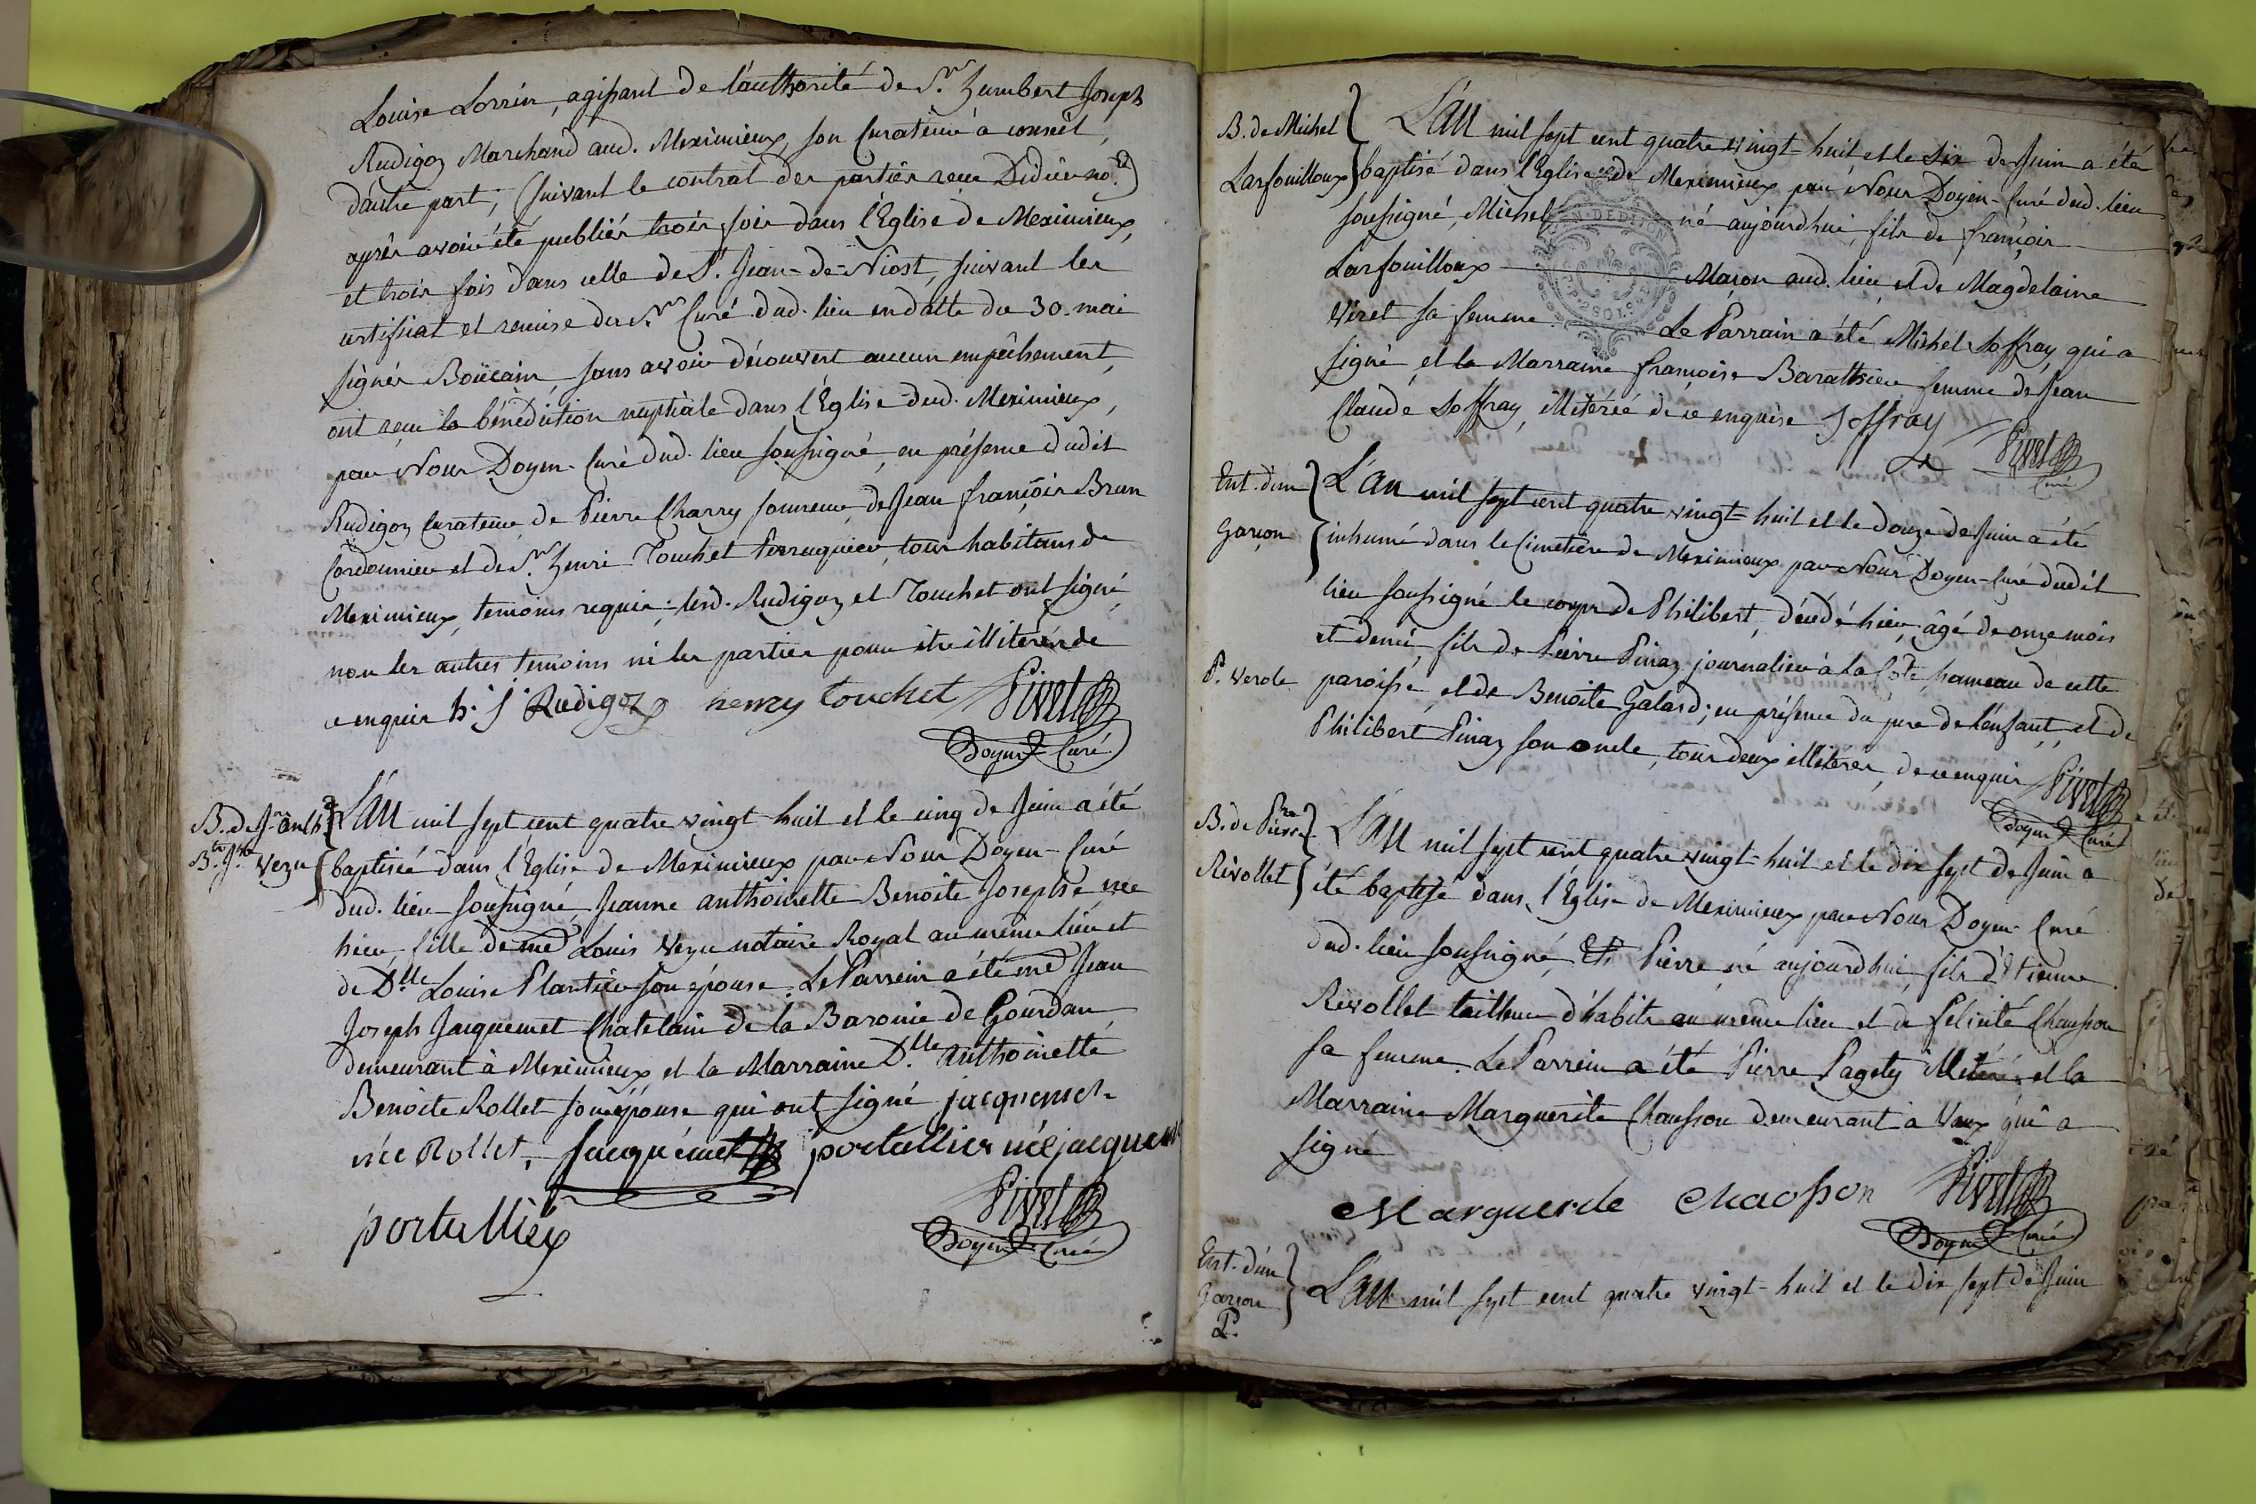 Louise Lorrin, agissant de l'authorité de Sr. humbert Joseph
Rudigoz Marchand aud. Meximieux, son Curateur à conseil,
d'autre part, (suivant le contrat des parties reçu Didier no.re)
après avoir été publiés trois fois dans l'Eglise de Meximieux,
et trois fois dans celle de St. Jean-de-Niost, suivant les
certificat et remise du Sr. Curé dud. lieu en datte du 30. mai
signés Boucain, sans avoir découvert aucun empêchement,
ont reçu la bénédiction nuptiale dans l'Eglise dud. Meximieux,
par Nous Doyen-Curé dud. lieu soussigné, en présence dudit
Rudigoz Curateur, de Pierre Charry, de Jean françois Brun
Cordonnier et de Sr. henri Touchet Perruquier, tous habitans de
Meximieux, temoins requis; lesd. Rudigoz et Touchet ont signé,
non les autres temoins ni les parties pour être illiterés de
ce enquis h. j. Rudigoz henry touchet Pivet
Doyen Curé
B. de J.ne Anth.te
B.te J.phe Vezu
L'An mil sept cent quatre vingt-huit et le cinq de Juin a été
baptisée dans l'Eglise de Meximieux par Nous Doyen-Curé
dud. lieu soussigné, Jeanne anthoinette Benoite Josephe, née
hier, fille de me Louis Vezu notaire Royal au même lieu et
de Dlle. Louise Plantier son épouse. Le Parrein a été me Jean
Joseph Jacquemet Chatelain de la Baronie de Gourdan
demeurant à Meximieux et la Marraine Dlle. Anthoinette
Benoite Rollet son épouse qui ont signé jacquemet
née Rollet, Jacquemet portallier née jacquemet
portallier Pivet
Doyen Curé
B. de Michel
Larfouilloux
L'An mil sept cent quatre vingt-huit et le dix de Juin a été
baptisé dans l'Eglise de Meximieux par Nous Doyen-Curé dud. lieu
soussigné, Michel né aujourdhui, fils de françois
Larfouilloux Maçon aud. lieu et de Magdelaine
Viret sa femme Le Parrain a été Michel Joffray qui a
signé et la Marraine françoise Barathier femme de Jean
Claude Joffray, illiterée de ce enquise Joffray
Pivet
Curé
Ent. d'un
Garçon
P. Verole
L'An mil sept cent quatre vingt-huit et le douze de Juin a été
inhumé dans le Cimetière de Meximieux par Nous Doyen-Curé dudit
lieu soussigné le corps de Philibert, décédé hier, âgé de onze mois
et demi, fils de Pierre Pinaz journalier à la Cote, hameau de cette
paroisse, et de Benoite Galard; en présence du pere de l'enfant, et de
Philibert Pinaz son oncle, tous deux illiterés, de ce enquis Pivet
Doyen Curé
B. de Pierre
Rivollet
L'An mil sept cent quatre vingt-huit et le dix sept de Juin a
été baptisé dans l'Eglise de Meximieux par Nous Doyen-Curé
dud. lieu soussigné, Pierre né aujourdhui, fils d'Etienne
Rivollet tailleur d'habits au même lieu et de felicité Chausson
sa femme. Le Parrein a été Pierre Pagety illitéré, et la
Marraine Marguerite Chausson demeurant à Vaux qui a
signé
Marguerite Chaosson Pivet
Doyen Curé
Ent. d'un
Garçon
P.
L'An mil sept cent quatre vingt-huit et le dix sept de Juin